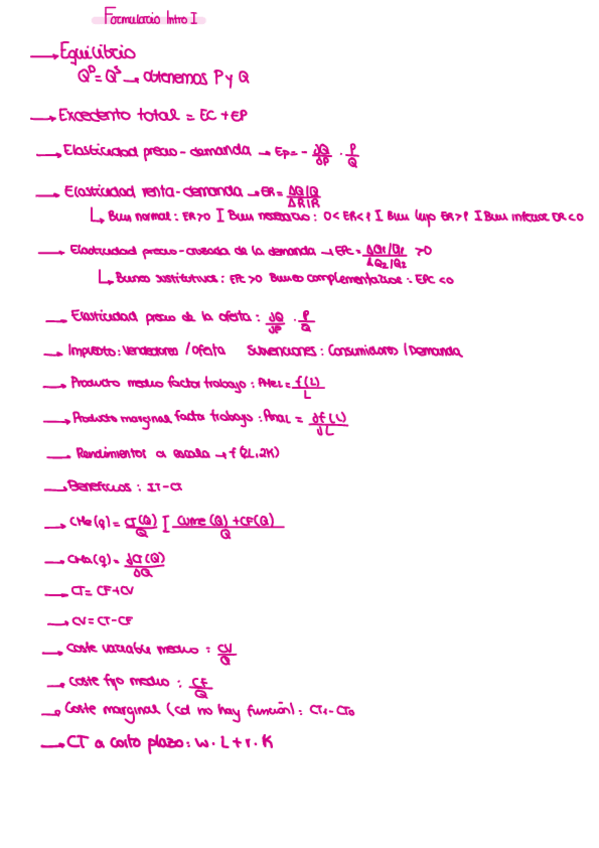 Formulario Intro I
→ Equilibrio
Q^D = Q^S → obtenemos P y Q
→ Excedente total = EC + EP
→ Elasticidad precio-demanda → Ep = - dQ/dP · P/Q
→ Elasticidad renta-demanda → ER = ΔQ/Q / ΔR/R
↳ Bien normal: ER>0 I Bien necesario: 0<ER<1 I Bien lujo ER>1 I Bien inferior ER<0
→ Elasticidad precio-cruzada de la demanda → EPC = ΔQ1/Q1 / ΔQ2/Q2 >0
↳ Bienes sustitutivos: EPC>0 Bienes complementarios: EPC<0
→ Elasticidad precio de la oferta: dQ/dP · P/Q
→ Impuesto: Vendedores / Oferta Subvenciones: Consumidores / Demanda
→ Producto medio factor trabajo: PMeL = f(L)/L
→ Producto marginal factor trabajo: PmaL = df(L)/dL
→ Rendimientos a escala → f(2L,2K)
→ Beneficios: IT-CT
→ CMe(q) = CT(Q)/Q I Cvme(Q)+CF(Q)/Q
→ CMa(q) = dCT(Q)/dQ
→ CT = CF+CV
→ CV = CT-CF
→ Coste variable medio: CV/Q
→ Coste fijo medio: CF/Q
→ Coste marginal (cd no hay función): CT1-CT0
→ CT a corto plazo: w·L+r·K